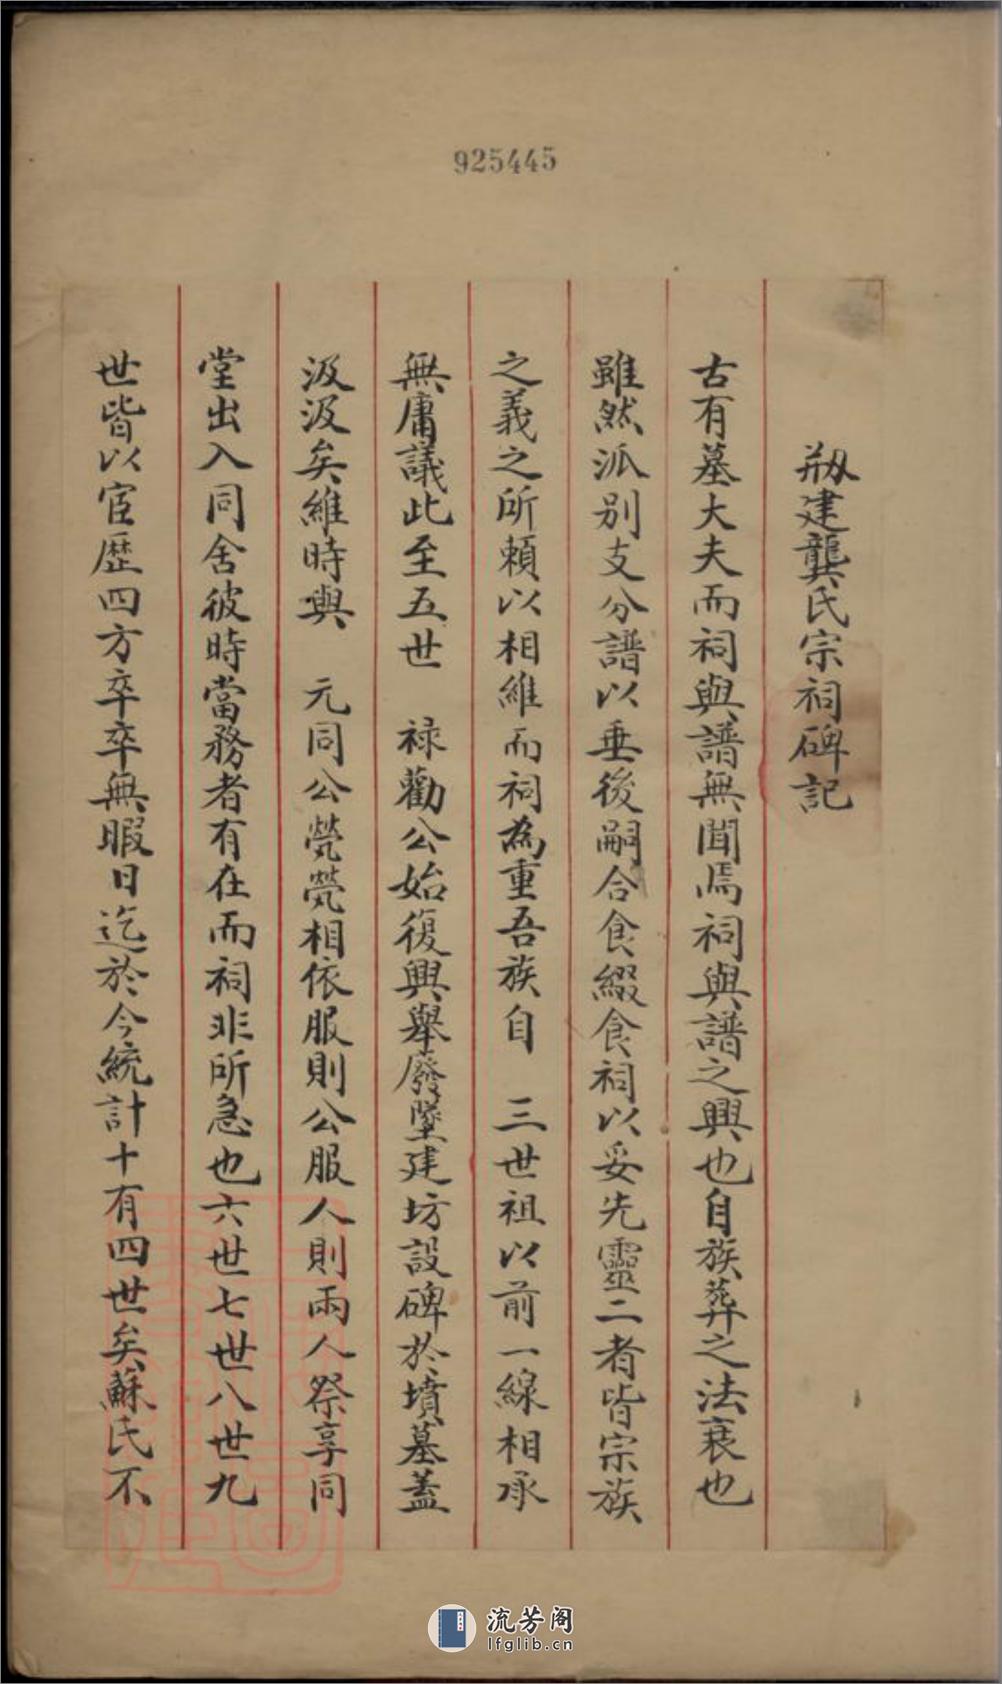 925445
剏建龔氏宗祠碑記
古有墓大夫而祠與譜無聞焉祠與譜之興也自族葬之法衰也
雖然派別支分譜以垂後嗣合食綴食祠以妥先靈二者皆宗族
之義之所賴以相維而祠為重吾族自 三世祖以前一線相承
無庸議此至五世 祿勸公始復興舉廢墜建坊設碑於墳墓蓋
汲汲矣維時與 元同公煢煢相依服則公服人則兩人祭享同
堂出入同舍彼時當務者有在而祠非所急也六世七世八世九
世皆以宦歷四方卒卒無暇日迄於今統計十有四世矣蘇氏不
流芳阁
lfglib.cn